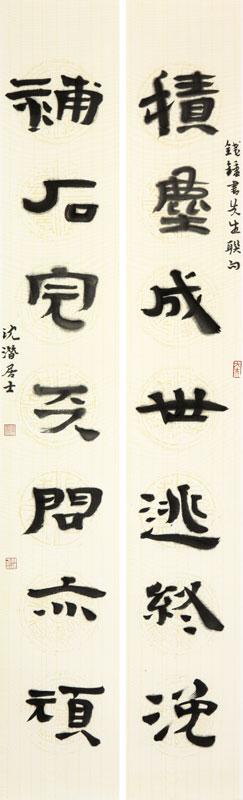 錢鍾書先生聯句
積塵成世逃終浼
補石完天問亦頑
沈潛居士